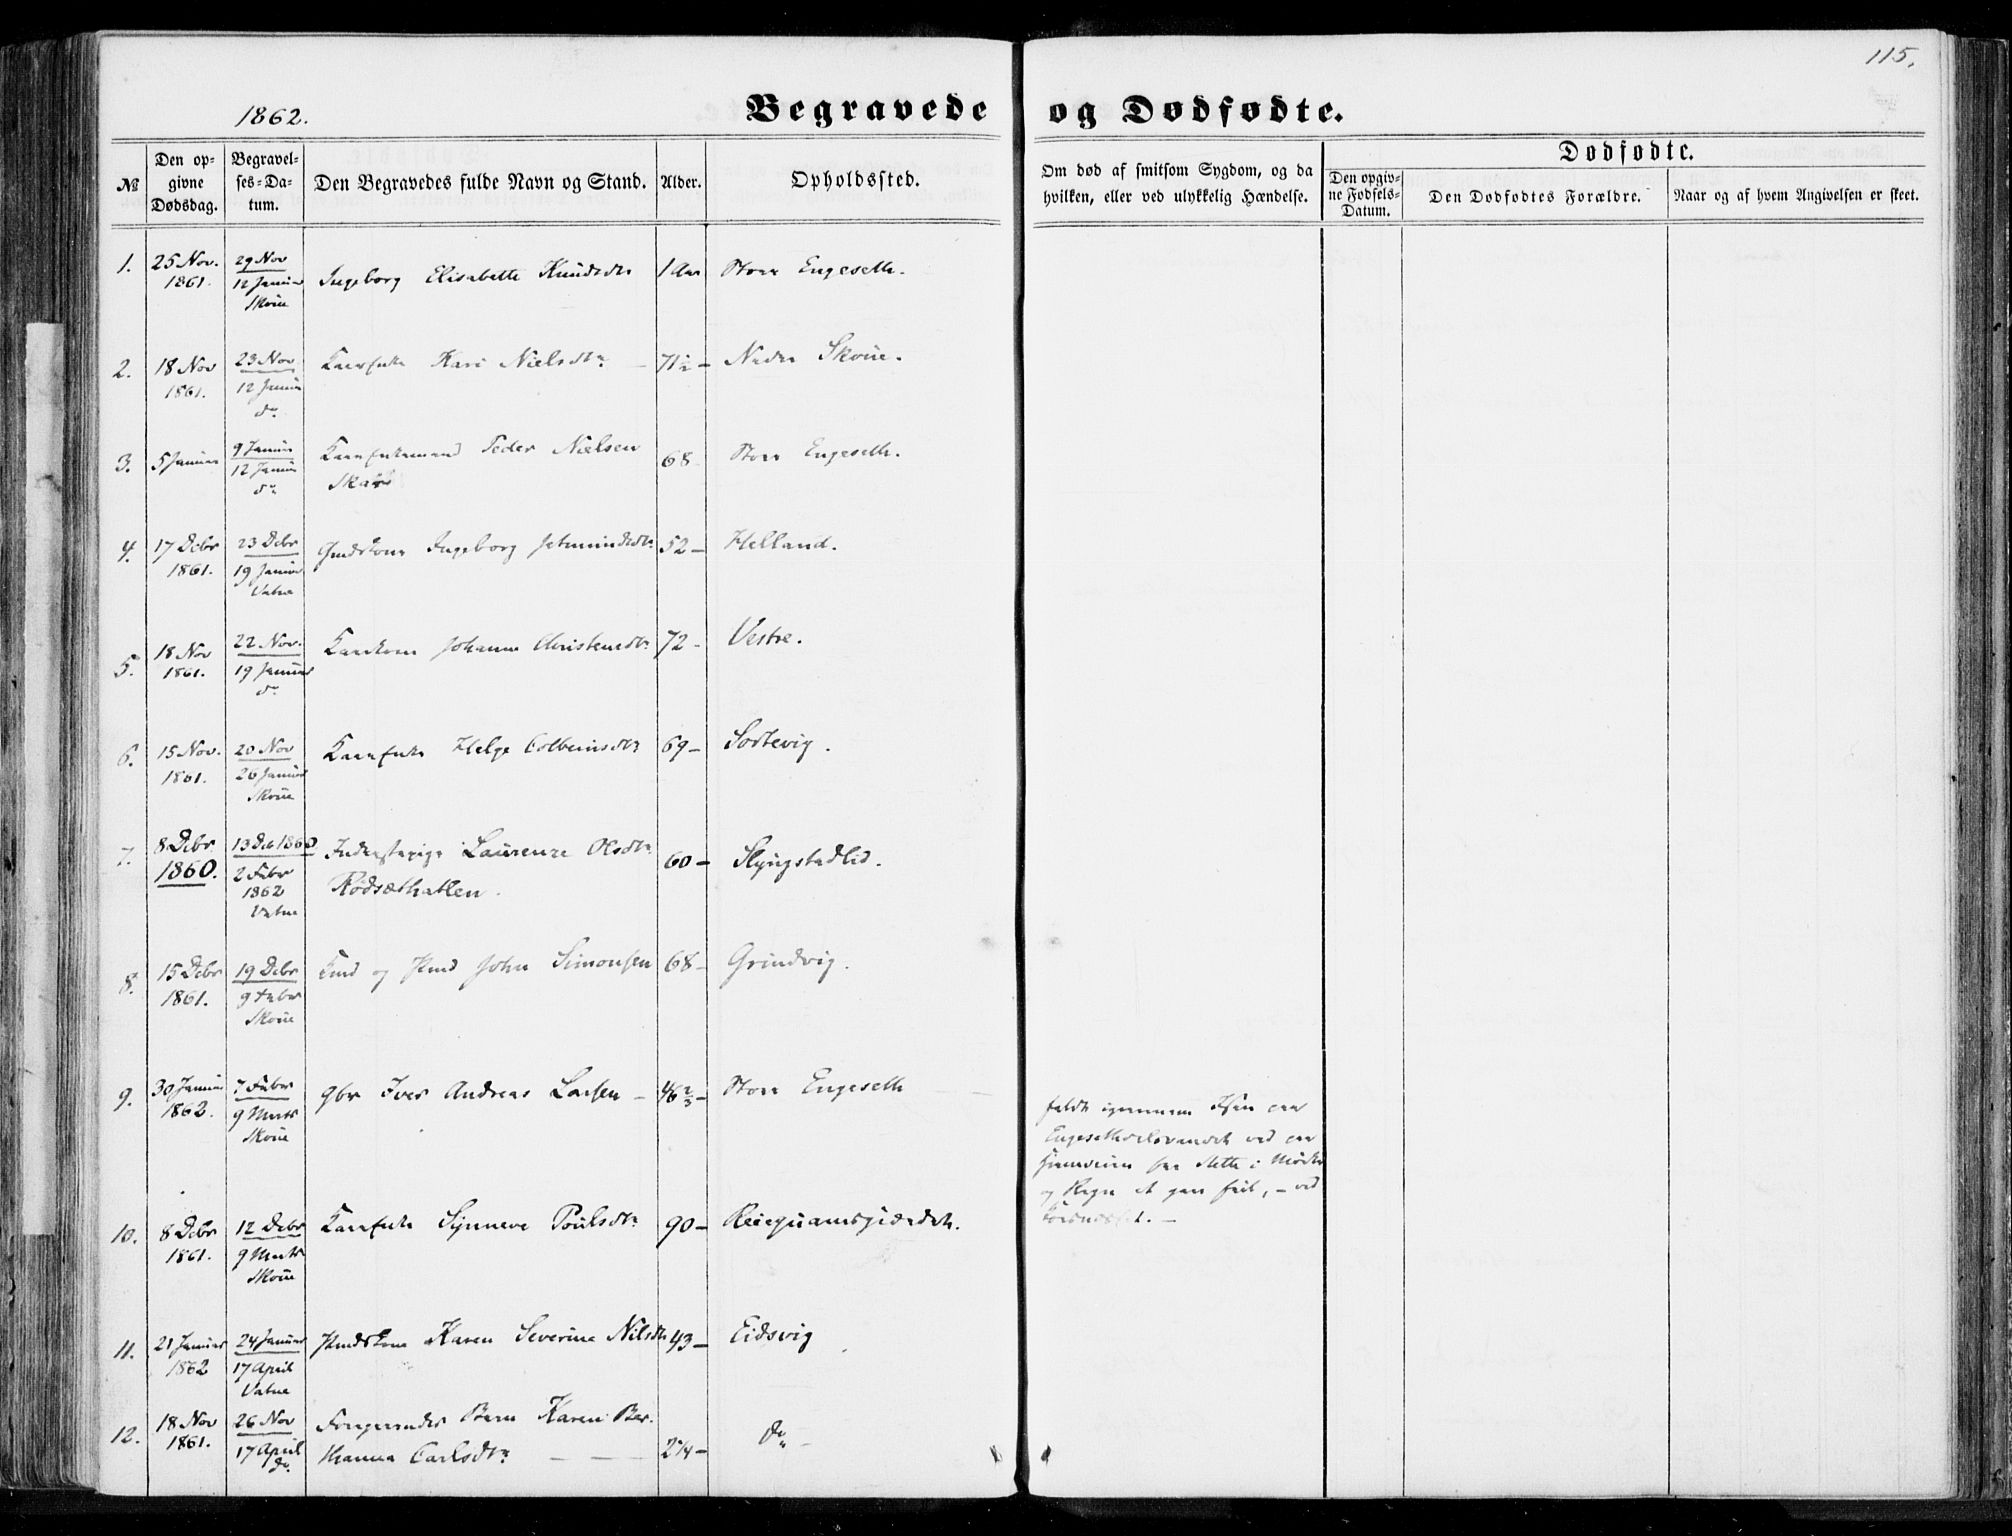 115.
1862.
Begravede og Dødfødte.
№
Den opgivne Dødsdag.
Begravelses-Datum.
Den Begravedes fulde Navn og Stand.
Alder.
Opholdssted.
Om død af smitsom Sygdom, og da hvilken, eller ved ulykkelig Hændelse.
Dødfødte.
Den opgivne Fødsels-Datum.
Den Dødfødtes Forældre.
Naar og af hvem Angivelsen er skeet.
1. 25 Nov. 29 Nov Ingeborg Elisabette Knudsdtr 1 Aar Store Engeseth.
1861. 12 Januar
Skoue
2. 18 Nov 23 Nov Kari Nielsdtr 71½ Nedre Skoue.
1861. 12 Januar
do
3. 5 Januar 9 Januar Peder Nielsen 68 Store Engeseth.
12 Januar
do
4. 17 Debr 23 Debr Ingeborg 52 Helland.
1861. 19 Januar
Vatne
5. 18 Nov 22 Nov. Johanne Christensdtr 72 Vestre.
1861. 19 Januar
do
6. 15 Nov. 20 Nov Helge Colbeinsdtr 69 Sortevig.
1861. 26 Januar
Skoue
7. 8 Debr 13 Deb 1860 Laurenze Olsdtr 60 Slyngstadlid.
1860. 2 Febr Rødsæthatlen.
1862
Vatne
8. 15 Debr 19 Debr og John Simonsen 68 Grindvig.
1861. 9 Febr
Skoue
9. 30 Januar 7 Febr gbr Iver Andreas Larsen 46⅔ Store Engeseth
1862. 9 Marts
Skoue
faldt igjennem Isen paa
ved paa
fra Slette i Mørke
og Regn at gaa feil, – ved
10. 8 Debr 12 Debr Synneve Poulsdtr 90
1861. 9 Marts
Skoue
11. 21 Januar 24 Januar Karen Severine Nilsdtr 43 Eidsvig
1862 17 April
Vatne
12. 18 Nov 26 Nov Barn Karen Ber-
1861. 17 April Carlsdtr 2¼ do
do